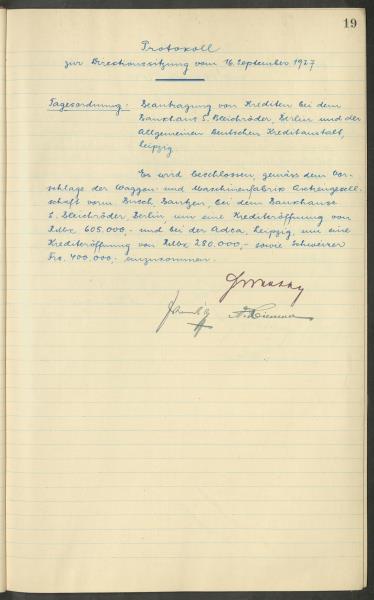 19
Protokoll
zur Direktionssitzung vom 16. September 1927
Tagesordnung: Beantragung von Krediten bei dem
Bankhaus S. Bleichröder, Berlin und der
Allgemeinen Deutschen Kreditanstalt,
Leipzig.
Es wird beschlossen, gemäss dem Vor-
schlage der Waggon- und Maschinenfabrik Aktiengesell-
schaft vorm. Busch, Bautzen, bei dem Bankhause
S. Bleichröder, Berlin, um eine Krediteröffnung von
RMk 605.000,- und bei der Adca, Leipzig, um eine
Krediteröffnung von RMk 280.000,- sowie Schweizer
Frs. 400.000,- einzukommen.